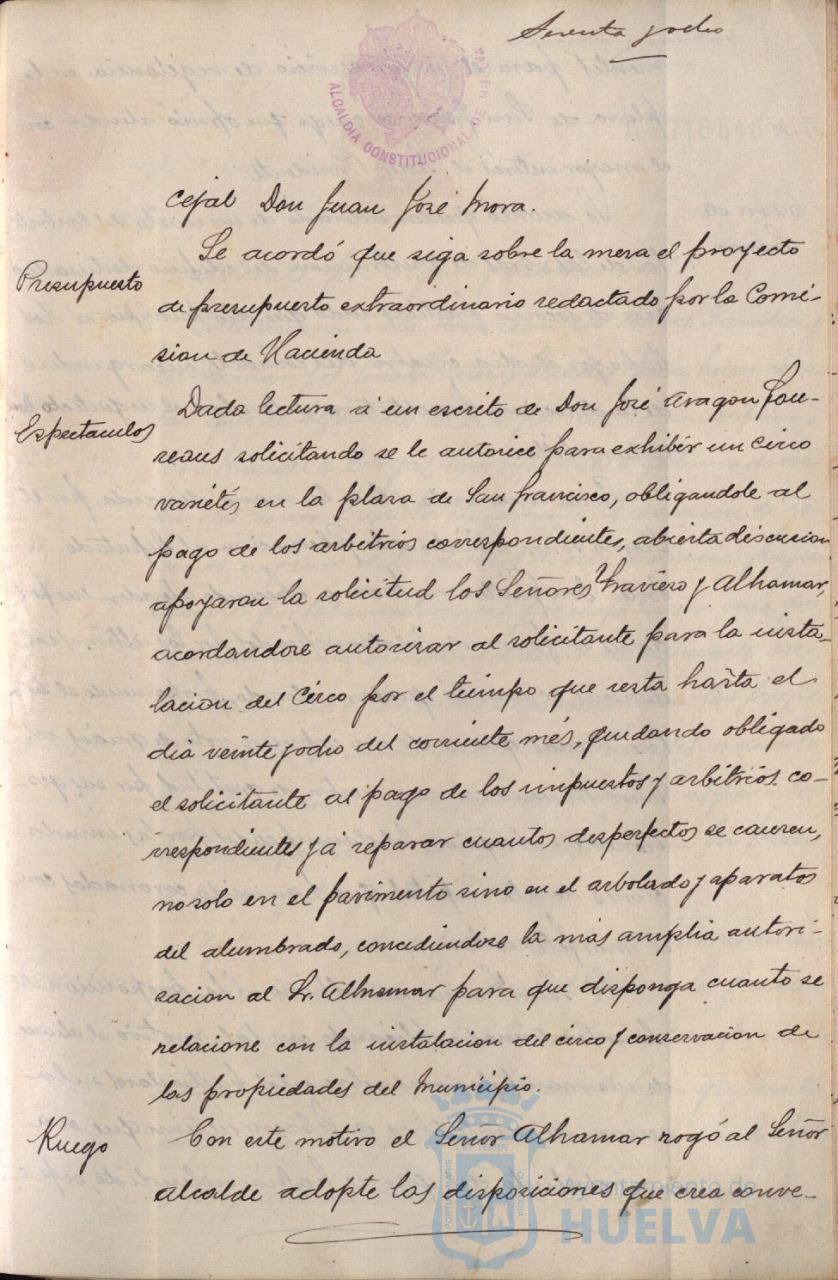 Sesenta y ocho
ALCALDIA CONSTITUCIONAL DE
cejal Don Juan José Mora.
Presupuesto
Se acordó que siga sobre la mesa el proyecto
de presupuesto extraordinario redactado por la Comi-
sion de Hacienda
Espectaculos
Dada lectura á un escrito de Don José Aragon
solicitando se le autorice para exhibir un circo
varietés en la plaza de San Francisco, obligandole al
pago de los arbitrios correspondientes, abierta discusion
apoyaron la solicitud los Señores Traviero y Alhamar,
acordandose autorizar al solicitante para la insta-
lacion del Circo por el tiempo que resta hasta el
dia veinte y ocho del corriente més, quedando obligado
el solicitante al pago de los impuestos y arbitrios co-
rrespondientes y á reparar cuantos desperfectos se causen,
no solo en el pavimento sino en el arbolado y aparatos
del alumbrado, concediendose la más amplia autori-
sacion al Sr. Alhamar para que disponga cuanto se
relacione con la instalacion del circo y conservacion de
las propiedades del Municipio.
Ruego
Con este motivo el Señor Alhamar rogó al Señor
alcalde adopte las disposiciones que crea conve-
Ayuntamiento de
HUELVA